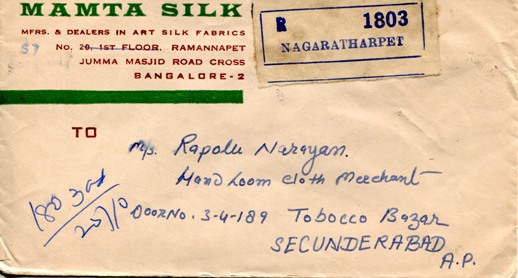 MAMTA SILK
MFRS. & DEALERS IN ART SILK FABRICS
59 No. 20, 1ST FLOOR. RAMANNAPET
JUMMA MASJID ROAD CROSS
BANGALORE-2
R 1803
NAGARATHARPET
TO
M/s. Rapolu Narayan.
Hand Loom Cloth Merchant
Door No. 3-4-189 Tobocco Bazar
SECUNDERABAD
A.P.